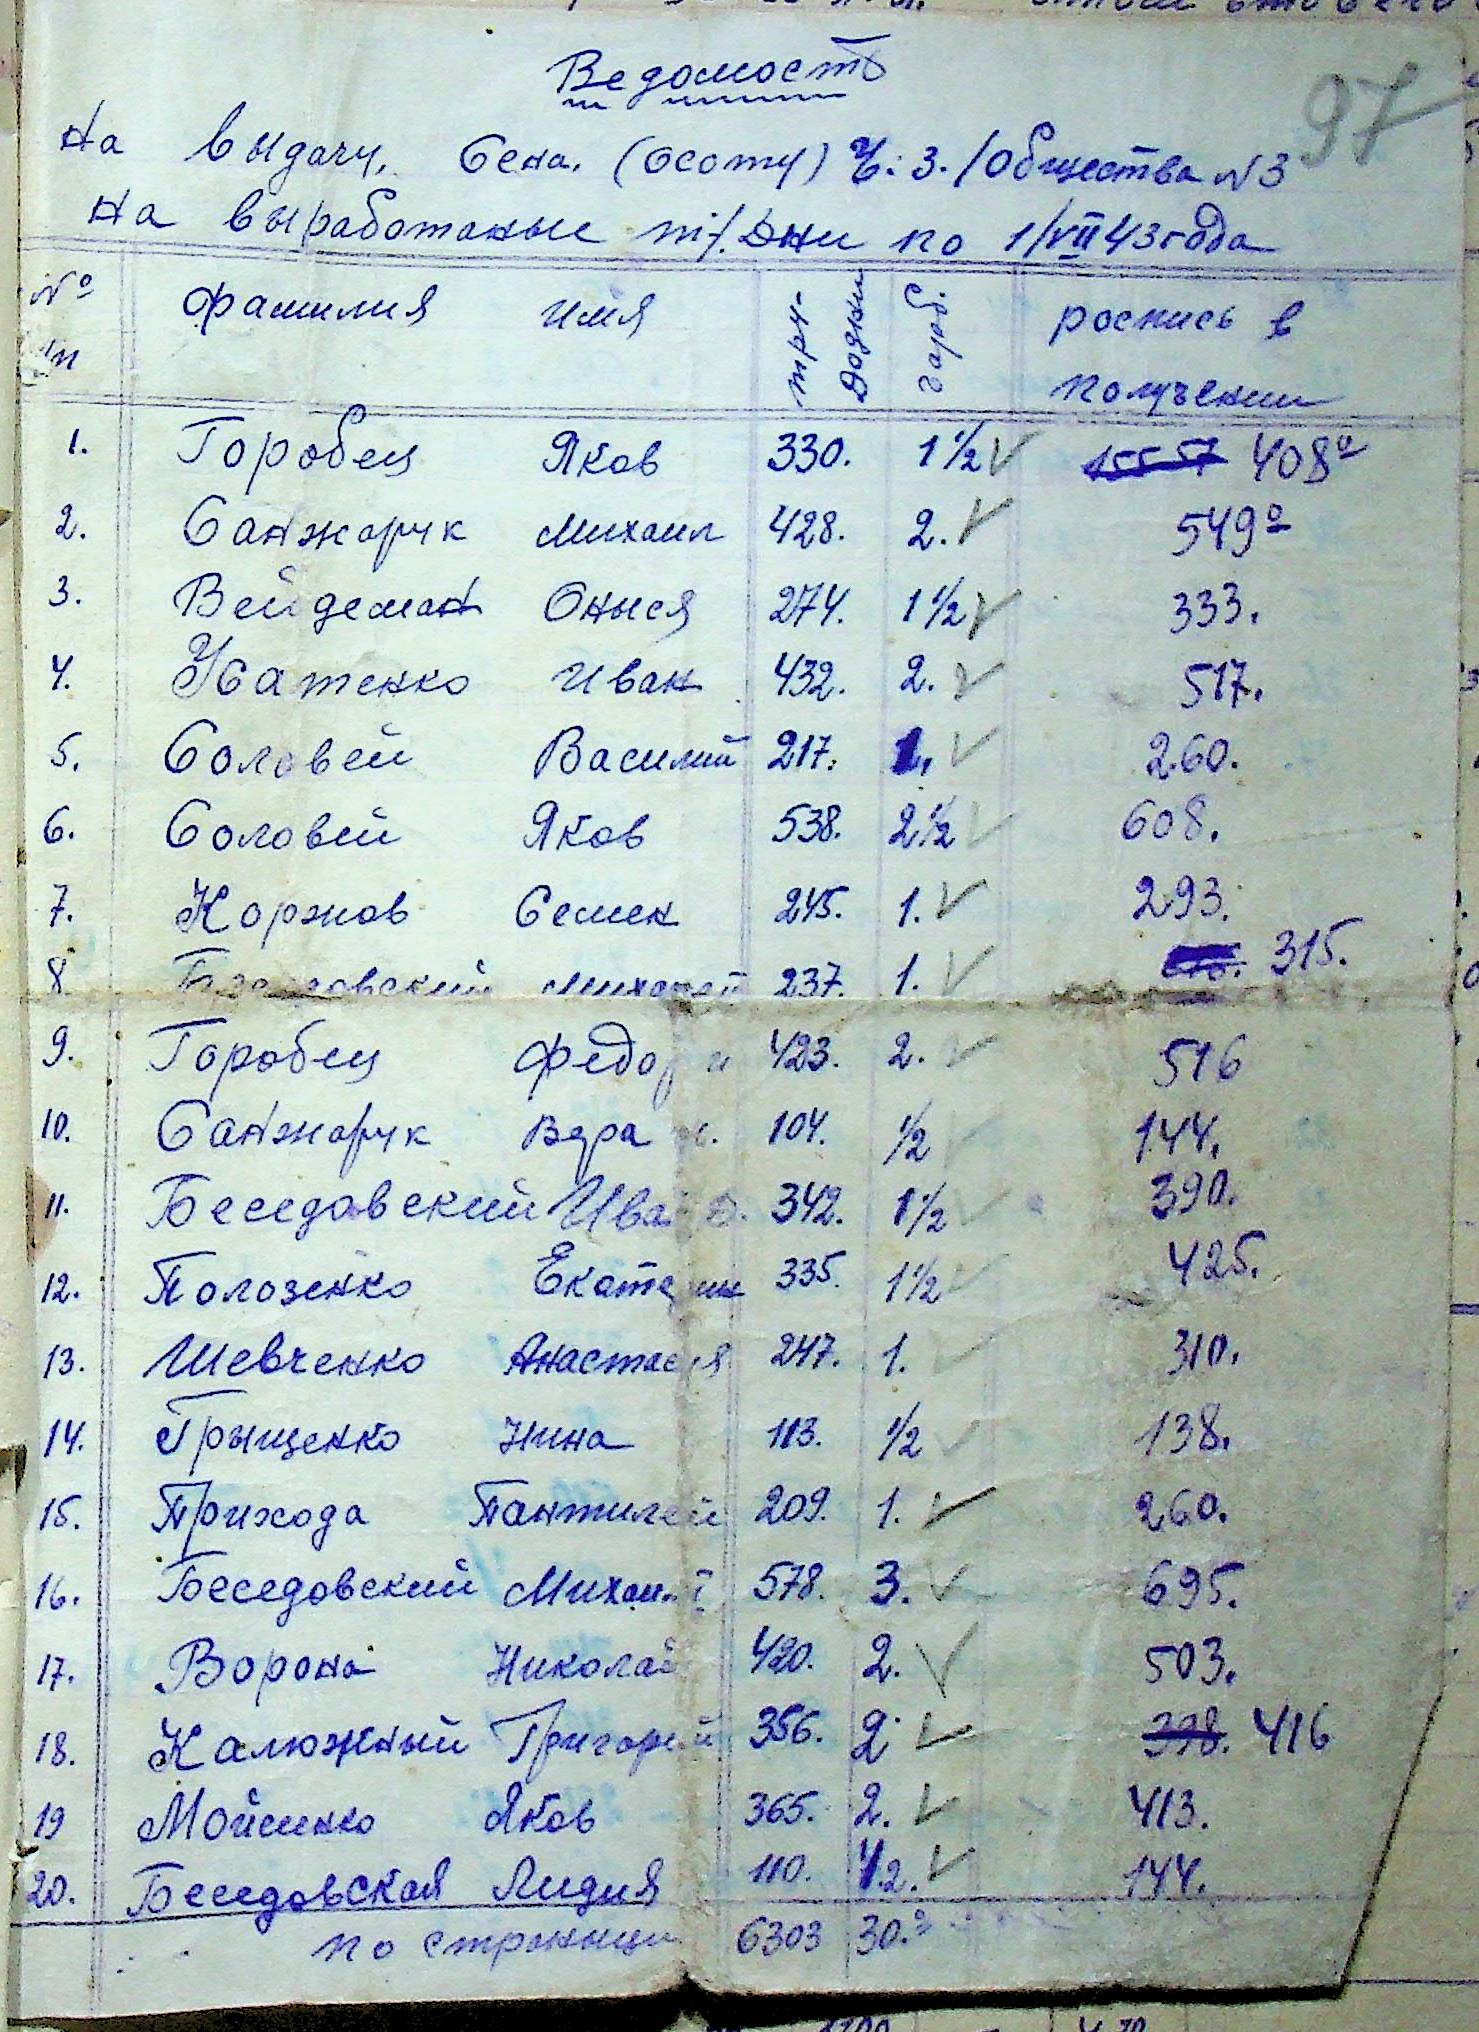 97
Ведомость
На выдачу. Сена. (осоту) Ч. З. /Общества №3
На выработаные т/. Дни по 1/VII 43 года
№ пп фамилия имя тру-додни гарб. роспись в получении
1. Горобец Яков 330. 1 1/2 408
2. Санжарук Михаил 428. 2. 549
3. Вейдеман Оныся 274. 1 1/2 333.
4. Усатенко Иван 432. 2. 517.
5. Соловей Василий 217. 1. 260.
6. Соловей Яков 538. 2 1/2 608.
7. Коржов Семен 245. 1. 293.
8 237. 1. 315.
9. Горобец Федор 423. 2. 516
10. Санжарук Вера 104. 1/2 144.
11. Беседовский Иван 342. 1 1/2 390.
12. Полозенко Екатерин 335. 1 1/2 425.
13. Шевченко Анастасия 247. 1. 310.
14. Грыщенко Нина 113. 1/2 138.
15. Прихода Пантилей 209. 1. 260.
16. Беседовский Михаил 578. 3. 695.
17. Ворона Николай 420. 2. 503.
18. Калюжный Григорей 356. 2 398. 416
19 Мойсенко Яков 365. 2. 413.
20. Беседовская Лидия 110. 1/2. 144.
по страници 6303 30.